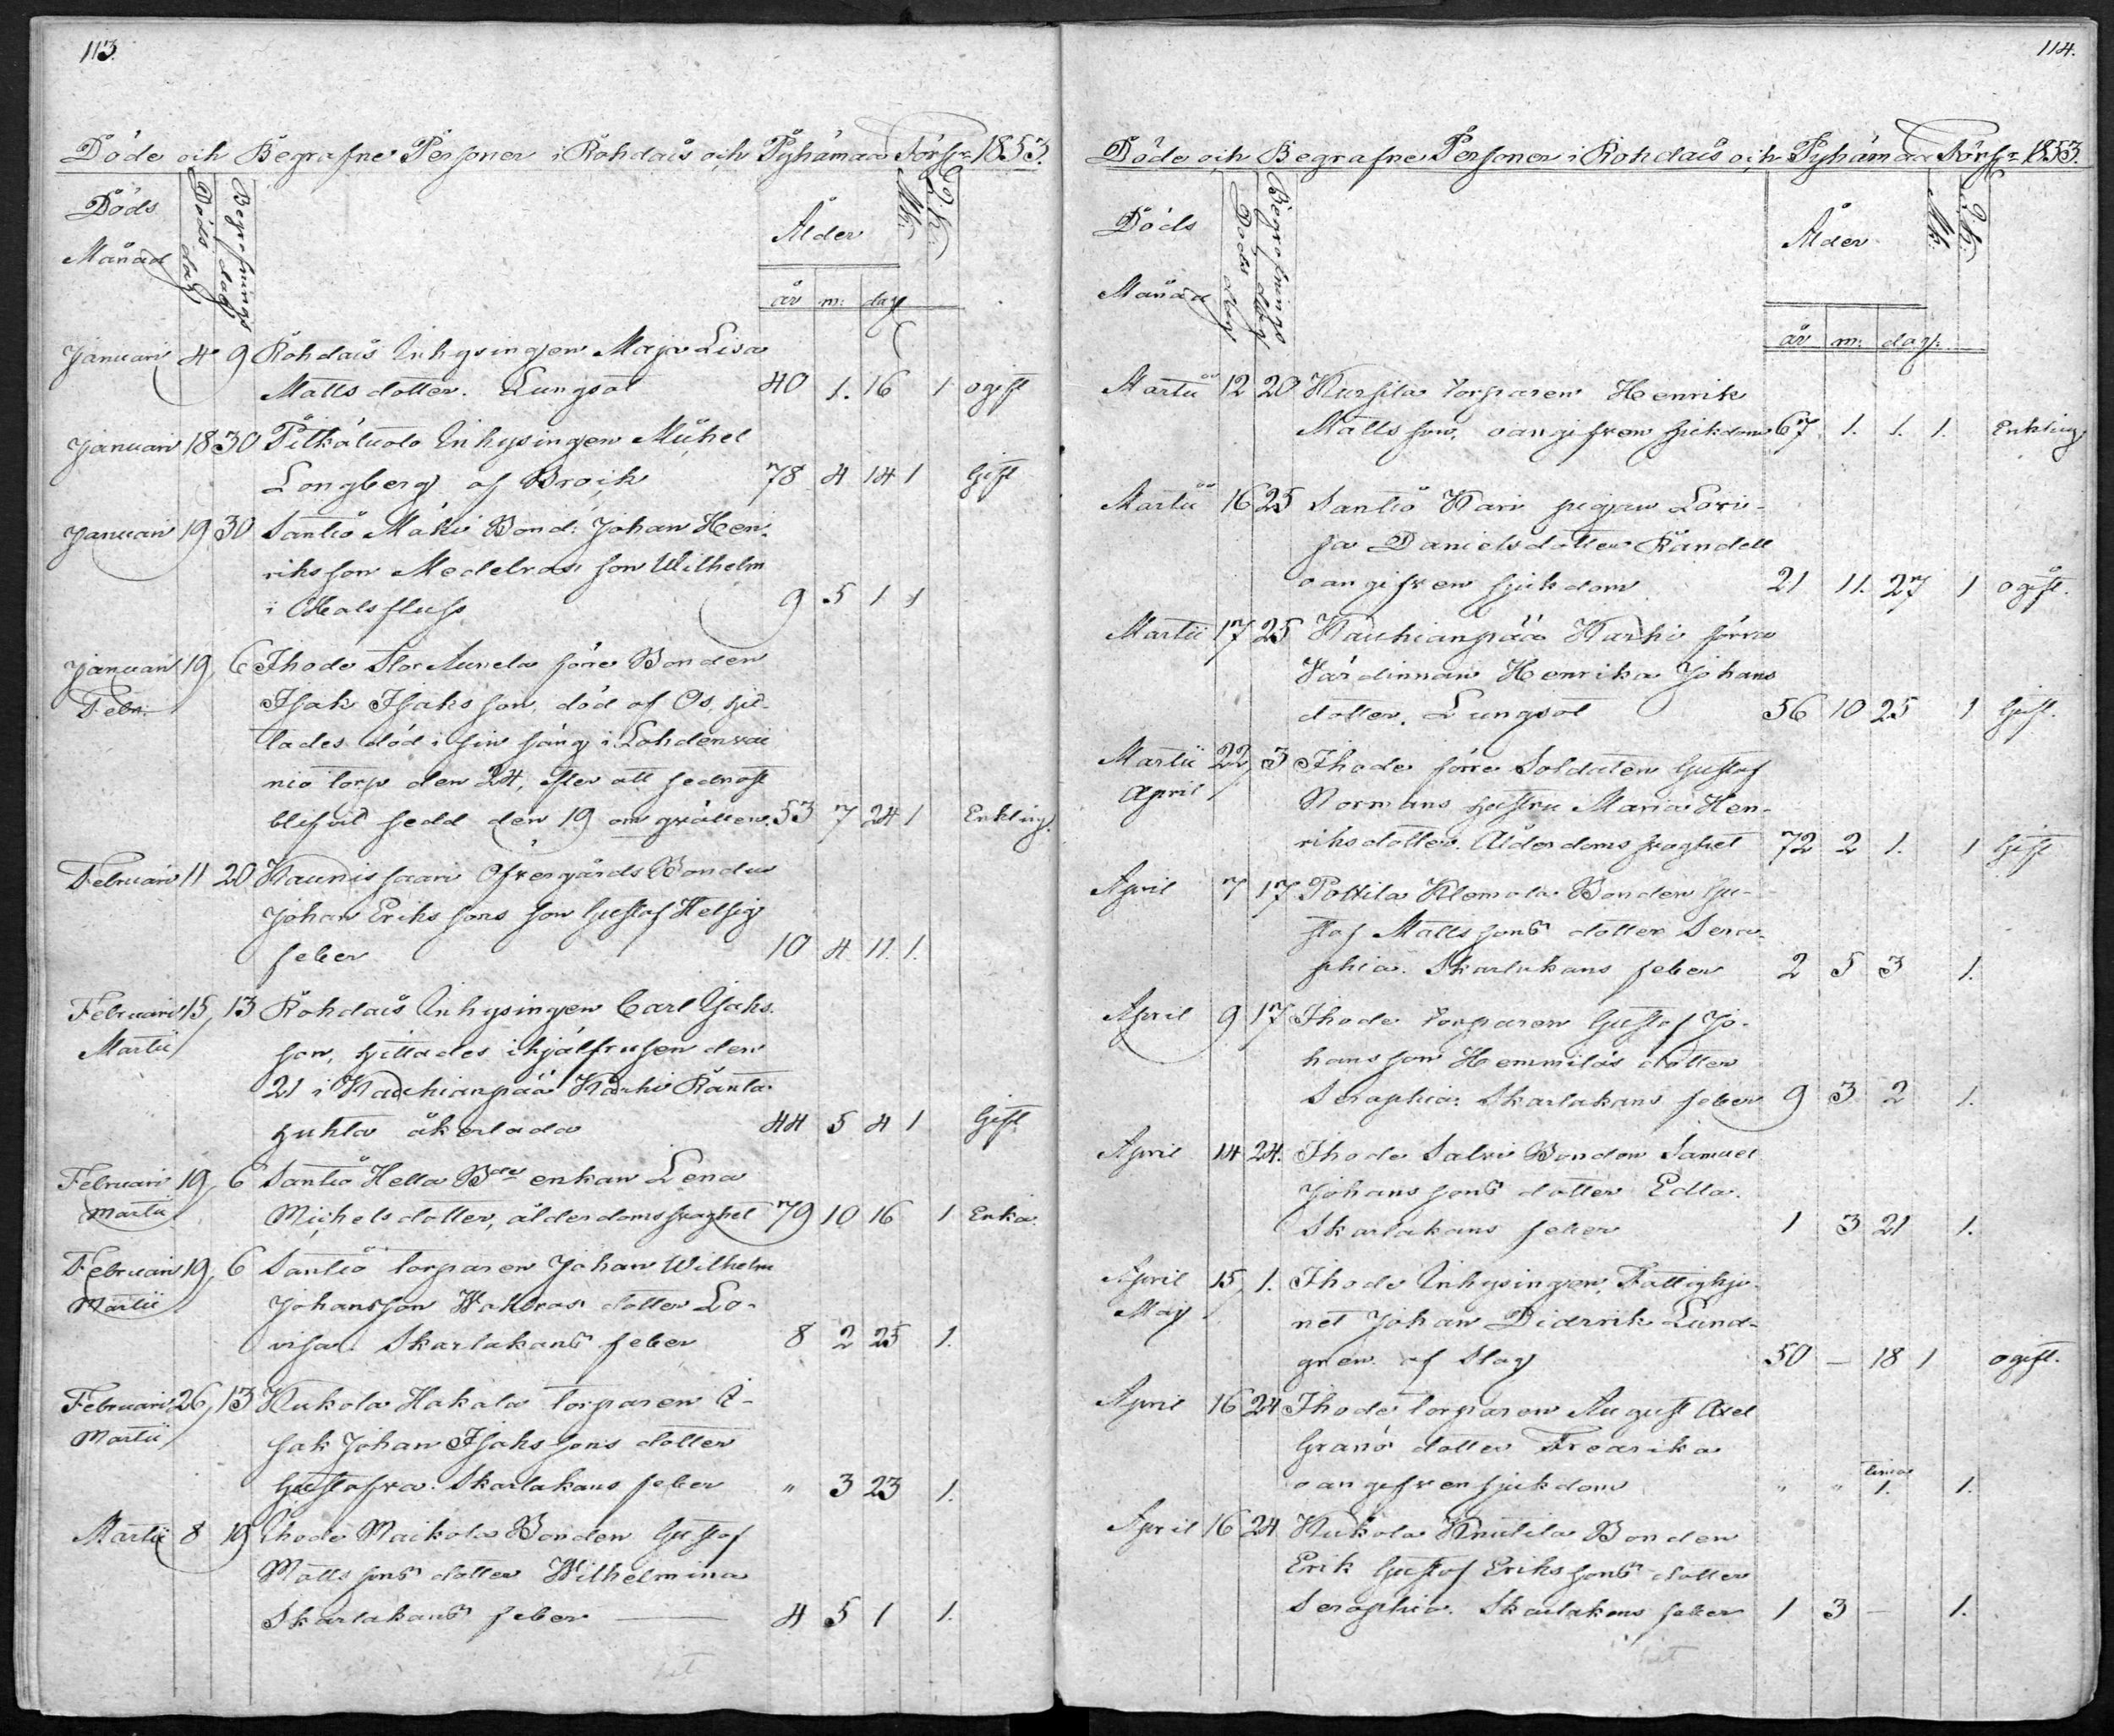 113.
Döde och Begrafne Personer i Rohdais och Pyhämaa Förs: 1853.
Döds Månad
Döds dag
Begrafnings dag
Ålder
Mk:
Qk:
år m: dag
Januari 4 9 Rohdais Inhysingen Maja Lisa
Mattsdotter. Lungsot 40 1. 16 1 ogift
Januari 18 30 Pitkäluoto Inhysingen Michel
Longberg af Bråck 78 4 14 1 Gift
Januari 19 30 Santio Mäki Bond: Johan Hen-
riksson Medelras son Wilhelm
i Halsfluss 9 5 1 1
Januari 19, 6 Ihode Stor Aunela förre Bonden
Febr: Isak Isaksson, död af Os, hit-
tades död i sin säng i Lohdenwai
nio torp den 24, efter att sednast
blifvit sedd den 19 om qvällen. 53 7 24 1 Enkling.
Februari 11 20 Kaunissaari Öfvergårds Bondens
Johan Erikssons son Gustaf Hetsig
feber 10 4 11. 1.
Februari 15, 13 Rohdais Inhysingen Carl Isaks
Martii son, hittades ihjälfrusen den
21 i Kauhianpää Karhi Ranta
huhta åkerlada 44 5 4 1 Gift
Februari 19, 6 Santio Hella Bde enkan Lena
Martii Michelsdotter, ålderdomssvaghet 79 10 16 1 Enka.
Februari 19, 6 Santio torparen Johan Wilhelm
Martii Johansson Wahlras dotter Lo-
visa. Skarlakans feber 8 2 25 1.
Februari 26, 13 Kukola Hakala torparen I-
Martii sak Johan Isakssons dotter
Gustafva. Skarlakans feber " 3 23 1.
Martii 8 19 Ihode Maikola Bonden Gustaf
Mattssons dotter Wilhelmina
Skarlakans feber — 4 5 1 1.
114.
Döde och Begrafne Personer i Rohdais och Pyhämaa Förs: 1853.
Döds Månad
Döds dag
Begrafnings dag
Ålder
Mk:
Qk:
år m: dag:
Martii 12 20 Kursila torparen Henrik
Mattsson, oangifven sjukdom 67 1. 1. 1. Enkling
Martii 16 25 Santio Kari pigan Lovi-
sa Danielsdotter Randell
oangifven sjukdom 21 11. 27 1 ogift.
Martii 17 25 Kauhianpää Karhi förra
Värdinnan Henrika Johans
dotter. Lungsot 56 10 25 1 Gift.
Martii 22, 3 Ihode förre Soldaten Gustaf
April Normans hustru Maria Hen-
riksdotter. Ålderdomssvaghet 72 2 1. 1 Gift
April 7 17 Pottila Klemola Bonden Gu-
staf Mattssons dotter Sera-
phia. Skarlakans feber 2 5 3 1.
April 9 17 Ihode torparen Gustaf Jo-
hansson Hemmiläs dotter
Seraphia. Skarlakans feber 9 3 2 1.
April 14 24. Ihode Salvi Bonden Samuel
Johanssons dotter Edla.
Skarlakans feber 1 3 21 1.
April 15, 1. Ihode Inhysingen, Fattighjo-
Maji net Johan Didrik Lund-
gren af Slag 50 — 18 1 ogift.
April 16 24 Ihode torparen August Axel
Granös dotter Fredrika
timar
oangifven sjukdom " " 1. 1.
April 16 24 Kukola Knutila Bonden
Erik Gustaf Erikssons dotter
Seraphia. Skarlakans feber 1 3 — 1.